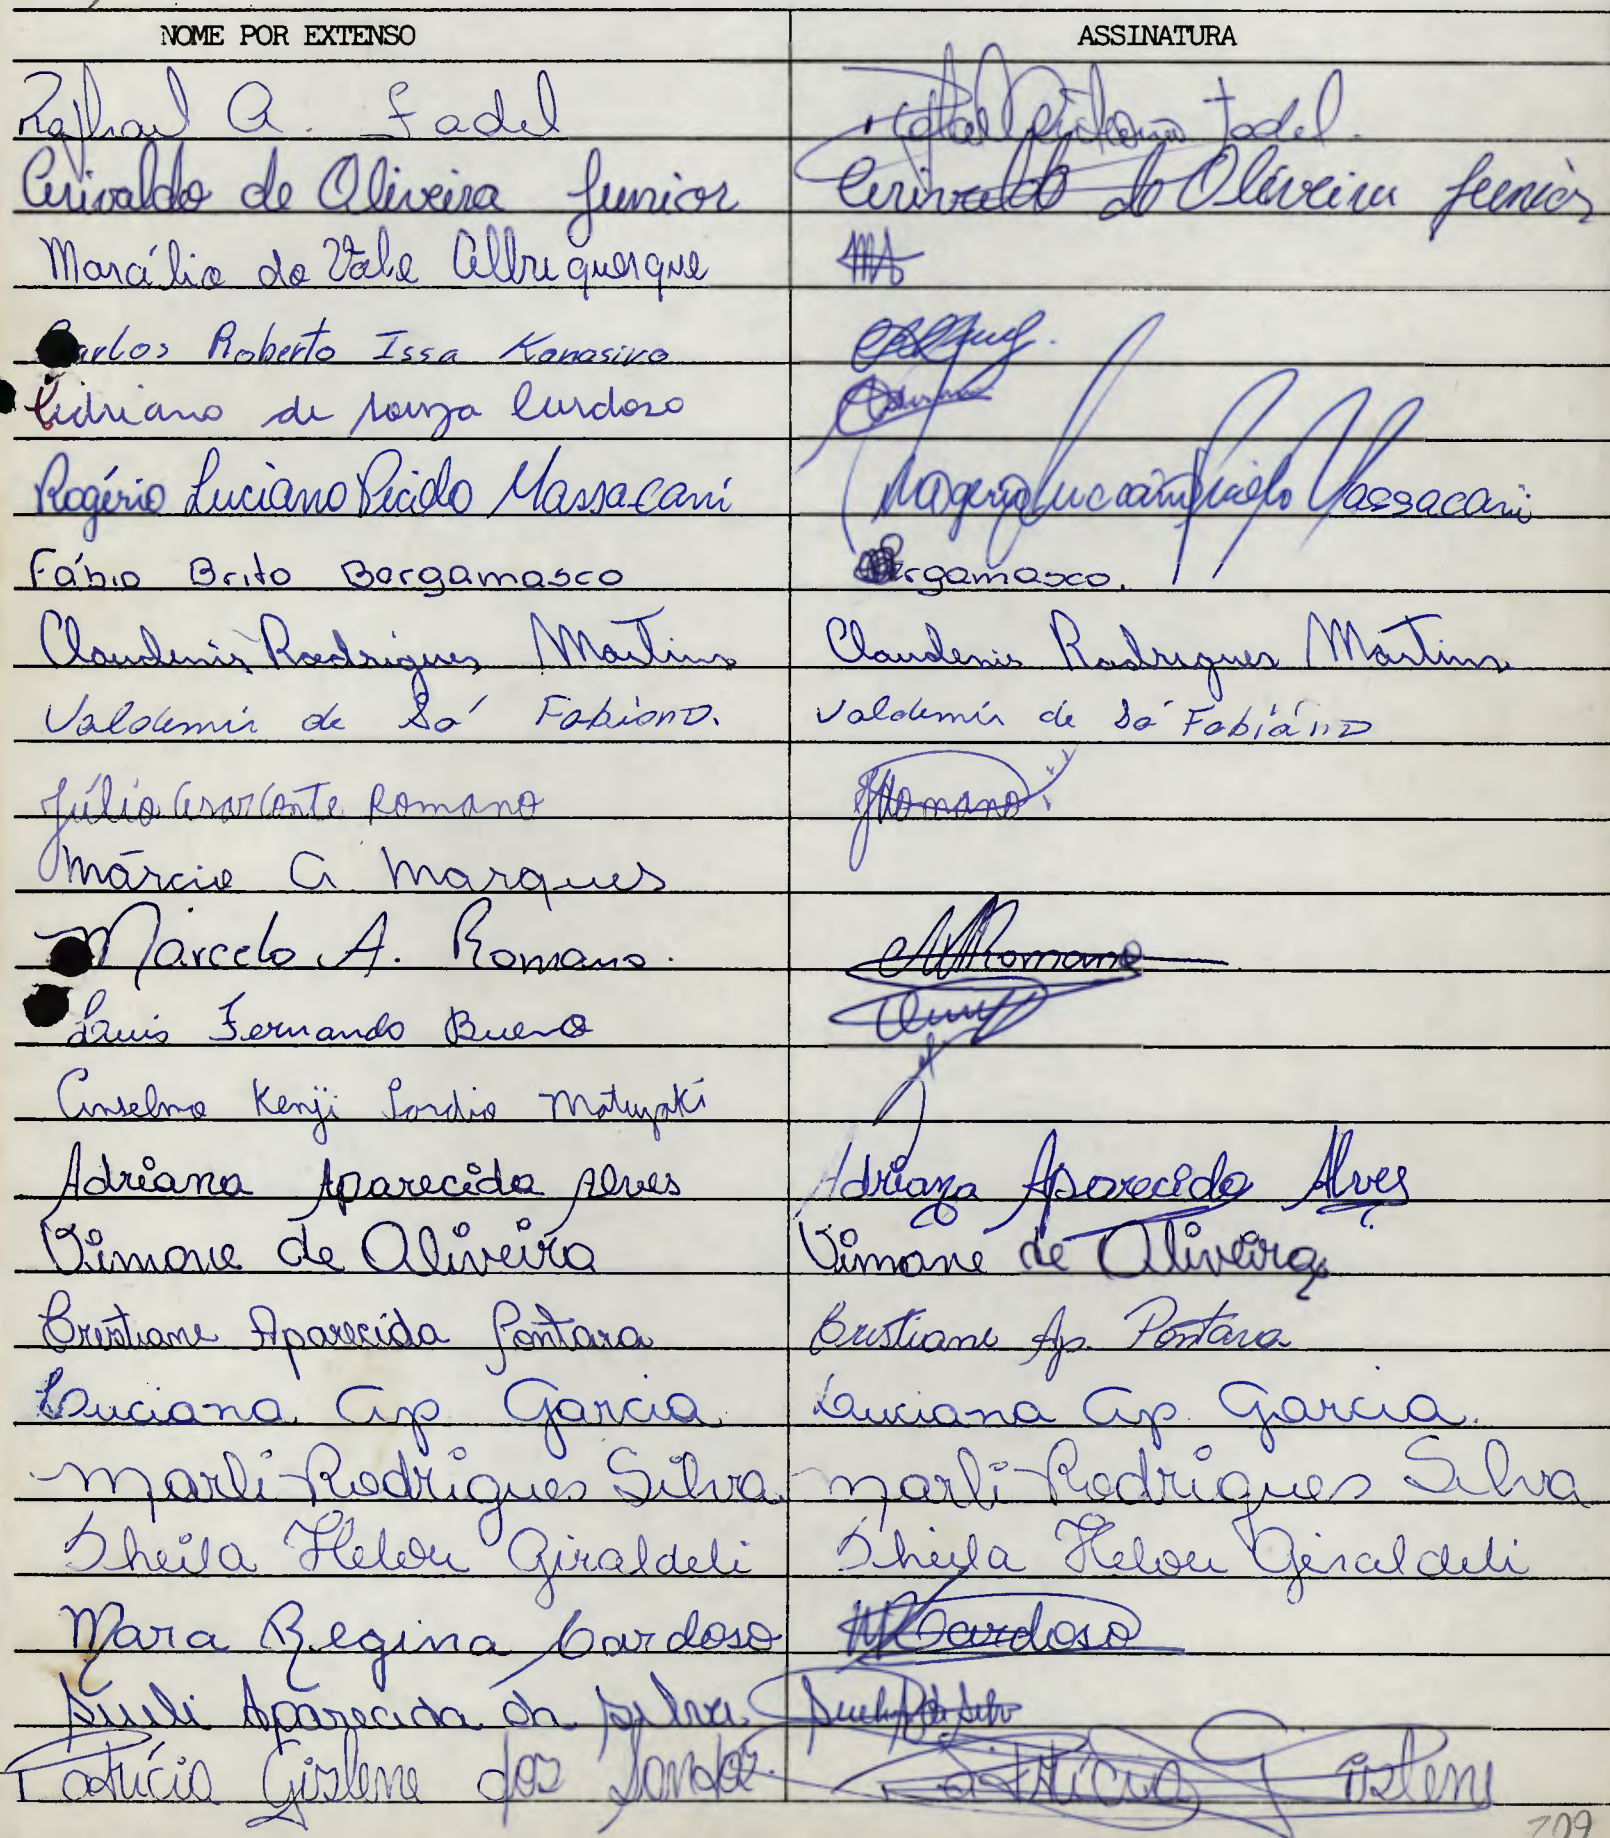 NOME POR EXTENSO ASSINATURA
Raphael A. Fadel Fadel.
Erivaldo de Oliveira Junior Erivaldo de Oliveira Junior
Marcílio do Vale Albuquerque MA
Carlos Roberto Issa Kanasiro
Adriano de Souza Cardoso
Rogério Luciano Picido Massacani Rogério Luciano Picido Massacani
Fábio Brito Bergamasco Bergamasco.
Claudenis Rodrigues Martins Claudenis Rodrigues Martins
Valdemir de Sá Fabiano. Valdemir de Sá Fabiano
Júlio Cesar Conte Romano JRomano
Márcio A Marques
Marcelo A. Romano. MARomano
Luis Fernando Bueno
Anselmo Kenji Sordio Matuyaki
Adriana Aparecida Alves Adriana Aparecida Alves
Simone de Oliveira Simone de Oliveira
Cristiane Aparecida Pontara Cristiane Ap. Pontara
Luciana Ap Garcia Luciana Ap Garcia.
Marli Rodrigues Silva Marli Rodrigues Silva
Sheila Helou Giraldeli Sheila Helou Giraldeli
Mara Regina Cardoso MRCardoso
Sueli Aparecida da Silva.
Patrícia Gislene dos Santos. Patrícia Gislene
709